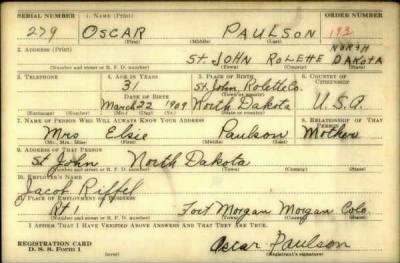 SERIAL NUMBER 1. NAME (Print) ORDER NUMBER
279 OSCAR PAULSON 193
(First) (Middle) (Last)
2. ADDRESS (Print) NORTH
ST. JOHN ROLETTE DAKOTA
(Number and street or R. F. D. number) (Town) (County) (State)
3. TELEPHONE 4. AGE IN YEARS 5. PLACE OF BIRTH 6. COUNTRY OF CITIZENSHIP
31 St. John Rolette Co.
DATE OF BIRTH (Town or county)
March 22 1909 North Dakota U.S.A.
(Exchange) (Number) (Mo.) (Day) (Yr.) (State or country)
7. NAME OF PERSON WHO WILL ALWAYS KNOW YOUR ADDRESS 8. RELATIONSHIP OF THAT PERSON
Mrs Elsie Paulson Mother
(Mr., Mrs., Miss) (First) (Middle) (Last)
9. ADDRESS OF THAT PERSON
St John North Dakota
(Number and street or R. F. D. number) (Town) (County) (State)
10. EMPLOYER'S NAME
Jacob Riffel
11. PLACE OF EMPLOYMENT OR BUSINESS
Rt 1 Fort Morgan Morgan Colo.
(Number and street or R. F. D. number) (Town) (County) (State)
I AFFIRM THAT I HAVE VERIFIED ABOVE ANSWERS AND THAT THEY ARE TRUE.
REGISTRATION CARD
D. S. S. Form 1 Oscar Paulson
(over) (Registrant's signature)